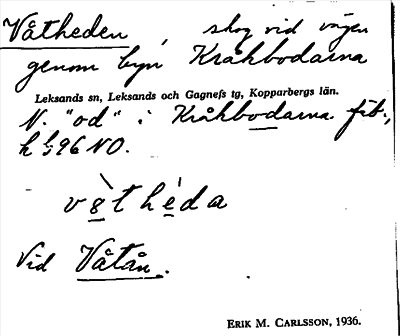 Våtheden, skog vid vägen
genom byn Kråkbodarna
Leksands sn, Leksands och Gagnefs tg, Kopparbergs län.
N. "od" i Kråkbodarna fäb.,
96 NO.
våtheda
Vid Våtån.
ERIK M. CARLSSON, 1936.